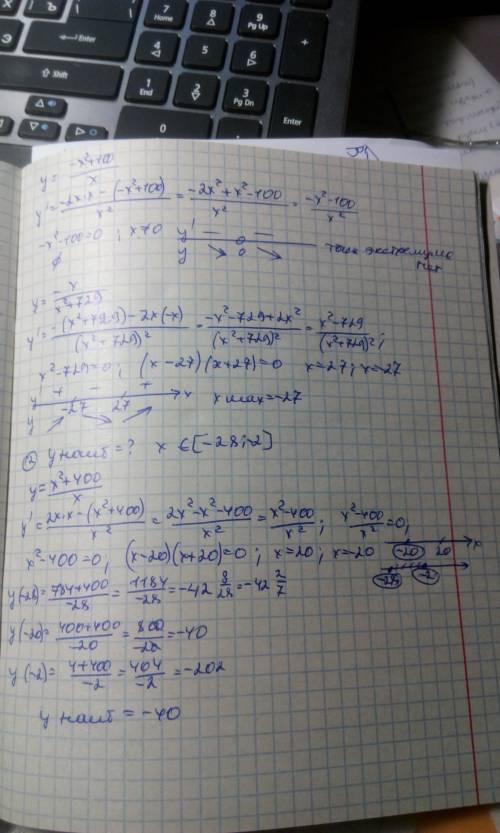 7 Home
8
9 Pg Up
+
Enter
4
5
6
Shift
1 End
2
3 Pg Dn
0
Enter
y = (-x²+100)/x
y' = (-2x·x - (-x²+100))/x² = (-2x²+x²-100)/x² = (-x²-100)/x²
-x²-100=0 ; x≠0 y' — 0 —
∅ y ↘ 0 ↘ точек экстремума нет
y = -x/(x²+729)
y' = (-(x²+729) - 2x(-x))/(x²+729)² = (-x²-729+2x²)/(x²+729)² = (x²-729)/(x²+729)² ;
x²-729=0 ; (x-27)(x+27)=0 x=27 ; x=-27
y' + -27 - 27 + x
y ↗ ↘ ↗ x max=-27
② y наиб = ? x ∈ [-28;-2]
y = (x²+400)/x
y' = (2x·x - (x²+400))/x² = (2x²-x²-400)/x² = (x²-400)/x² ; (x²-400)/x² = 0,
x²-400=0 ; (x-20)(x+20)=0 ; x=20 ; x=-20 -20 20 x
-28 -2
y(-28) = (784+400)/-28 = 1184/-28 = -42 8/28 = -42 2/7
y(-20) = (400+400)/-20 = 800/-20 = -40
y(-2) = (4+400)/-2 = 404/-2 = -202
y наиб = -40